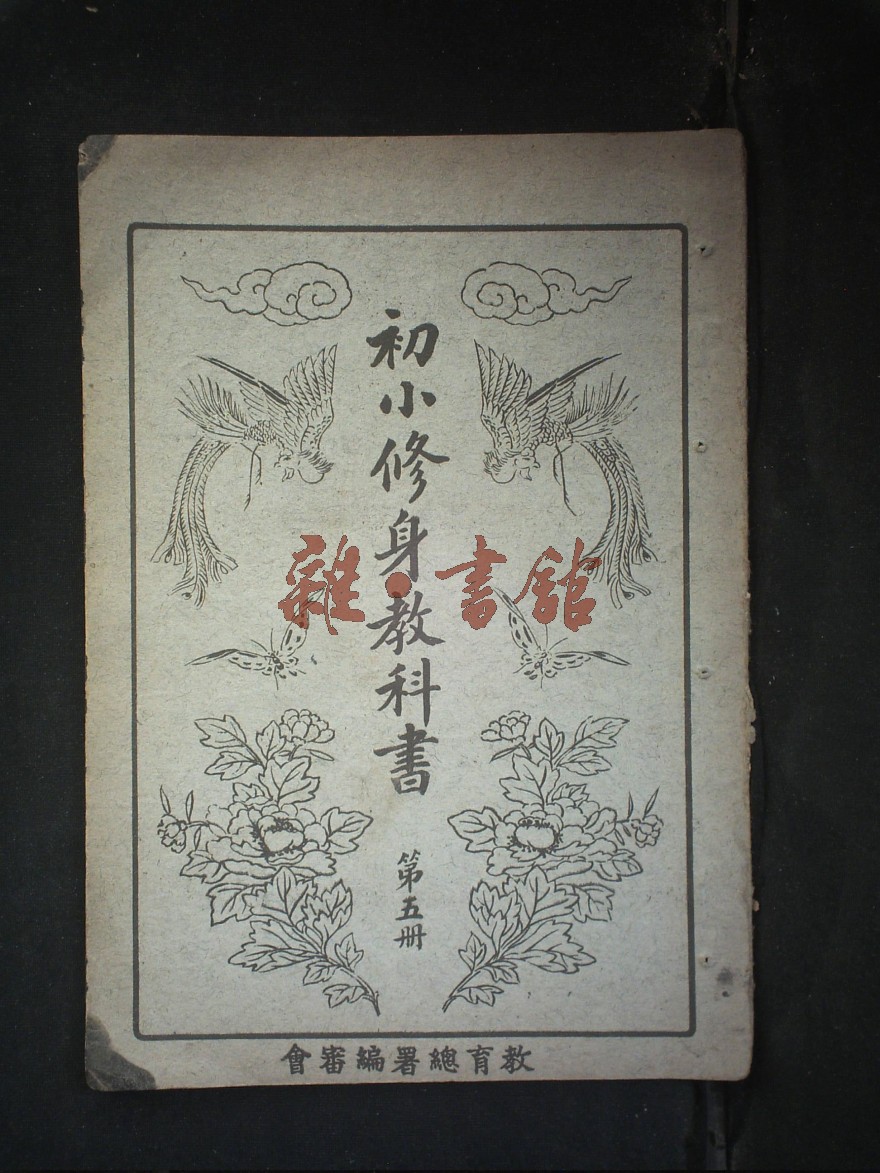 初小修身教科書
第五冊
雜·書館
教育總署編審會